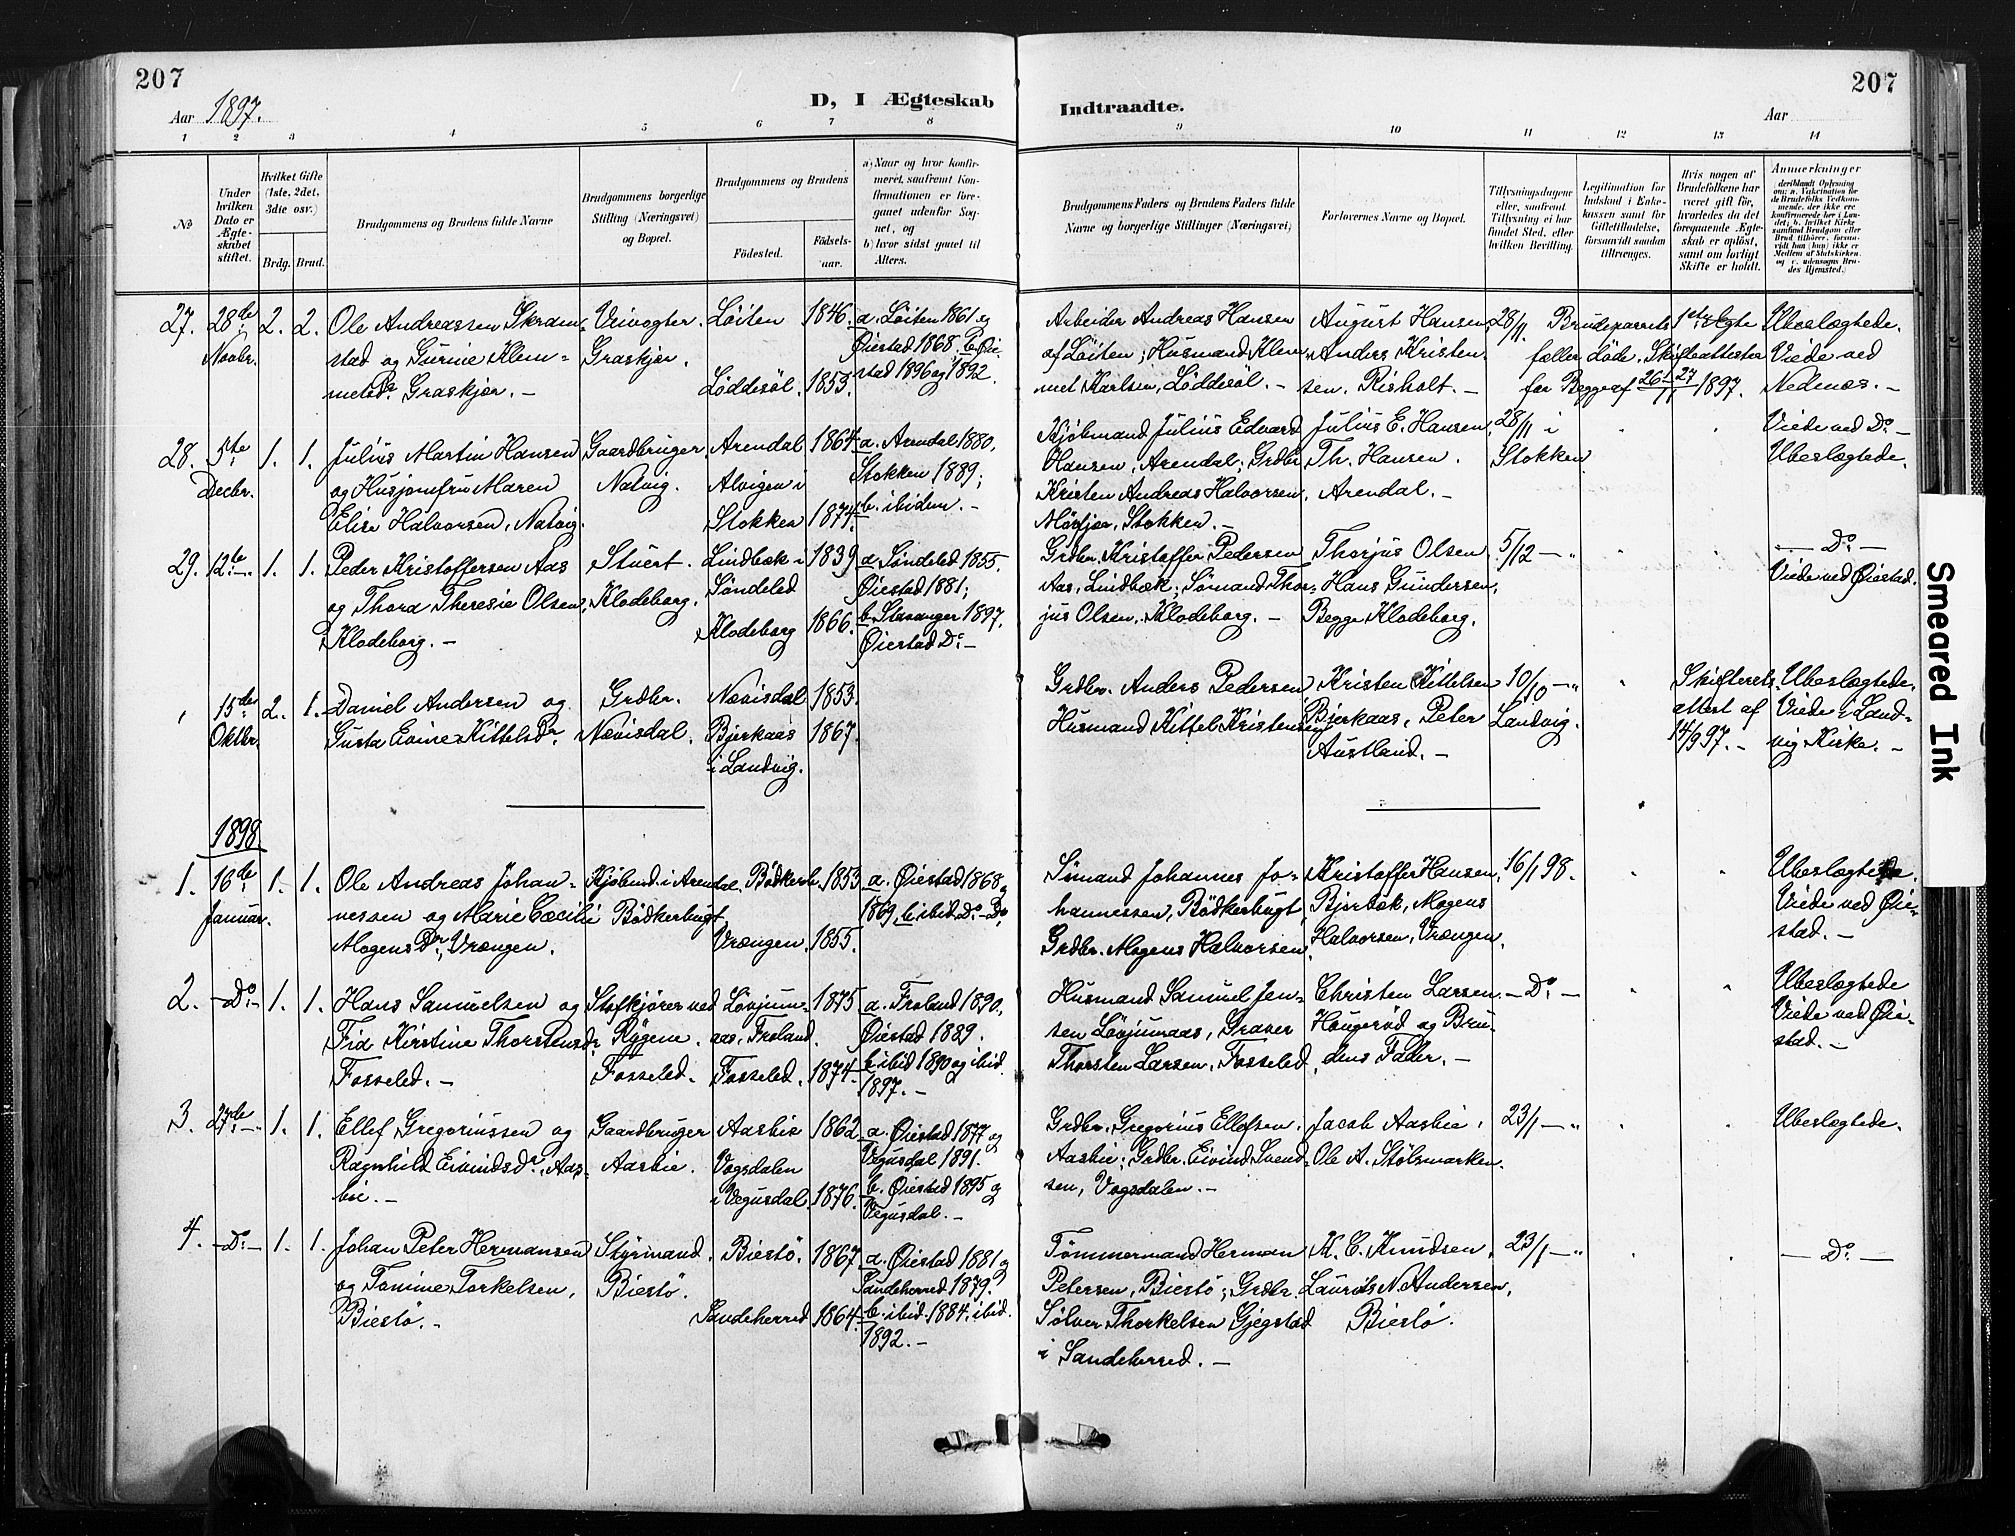 207
Aar 1897.
D, I Ægteskab
1 2 3 4 5 6 7 8
№
Under hvilken Dato er Ægteskabet stiftet.
Hvilket Gifte (1ste, 2det, 3die osv.)
Brdg. Brud.
Brudgommens og Brudens fulde Navne
Brudgommens borgerlige Stilling (Næringsvei) og Bopæl.
Brudgommens og Brudens
Fødested.
Fødselsaar.
a) Naar og hvor konfirmeret, saafremt Konfirmationen er foregaaet udenfor Sognet, og
b) hvor sidst gaaet til Alters.
27. 28de Novbr. 2. 2. Ole Andreassen Skramstad og Gurine Klemmetsdr. Graskjær. –
Veivogter. Graskjær.
Løiten 1846.
Løddesøl. 1853.
a. Løiten 1861 og Øiestad 1868. b. Øiestad 1896 og 1892.
28. 5te Decbr. 1. 1. Julius Martin Hansen og Husjomfru Maren Elise Halvorsen, Natvig.
Gaardbruger, Natvig.
Arendal 1864
Alvigen i Stokken 1874.
a. Arendal 1880, Stokken 1889; b. ibidem. –
29. 12te – 1. 1. Peder Kristoffersen Aas og Thora Theresie Olsen, Klodeborg. –
Stuert. Klodeborg.
Lindbæk i Søndeled 1839
Klodeborg 1866.
a. Søndeled 1855. Øiestad 1881; b. Stavanger 1897. Øiestad Do. –
15de Oktbr. 2. 1. Daniel Andersen og Gusta Evine Kittelsdr.
Grdbr. Nævisdal.
Nævisdal 1853.
Bjerkaas i Landvig. 1867.
1898.
1. 16de Januar. 1. 1. Ole Andreas Johannessen og Marie Cæcilie Mogens Dr, Vrængen.
Kjøbmd. i Arendal. Bødkerbugt
Bødkerb. 1853
Vrængen. 1855.
a. Øiestad 1868 og 1869, b. ibid. Do. – Do.
2. – Do – 1. 1. Hans Samuelsen og Fid Kirstine Thorstensdr. Fosseled. –
Stofkjører ved Rygene. Fosseled.
Løvjumaas, Froland. 1875
Fosseled. 1874.
a. Froland 1890., Øiestad 1889. b. ibid 1890 og ibid. 1897. –
3. 27de – 1. 1. Ellef Gregoriussen og Ragnhild Eivindsdr., Aasbie. –
Gaardbruger Aasbie.
Aasbie 1862
Vogsdalen i Vegusdal. 1876.
a. Øiestad 1877 og Vegusdal 1891. b. Øiestad 1895 og Vegusdal. –
4. – Do – 1. 1. Johan Peter Hermansen og Tomine Torkelsen, Biestø. –
Styrmand. Biestø.
Biestø. 1867
Sandeherred 1864.
a. Øiestad 1881 og Sandeherred 1879. b. ibid. 1884. ibid. 1892. –
207
Indtraadte.
Aar
9 10 11 12 13 14
Brudgommens Faders og Brudens Faders fulde Navne og borgerlige Stillinger (Næringsvei)
Forlovernes Navne og Bopæl.
Tillysningsdagene eller, saafremt Tillysning ei har fundet Sted, efter hvilken Bevilling.
Legitimation for Indskud i Enkekassen samt for Giftetilladelse, forsaavidt saadan tiltrænges.
Hvis nogen af Brudefolkene har været gift før, hvorledes da det foregaaende Ægteskab er opløst, samt om lovligt Skifte er holdt.
Anmærkninger
Arbeider Andreas Hansen af Løiten; Husmand Klemmet Karlsen, Løddesøl. –
August Hansen, Anders Kristensen. Risholt. –
28/11 Brudeparrets 1ste Ægtefæller døde. Skifteattester for Begge af 26 27/11 1897.
Ubeslægtede. Viede ved Nedenæs. –
Kjøbmand Julius Edvard Hansen, Arendal; Grdbr. Kristen Andreas Halvorsen, Mørfjær, Stokken. –
Julius E. Hansen, Th. Hansen. Arendal. –
28/11 i Stokken.
Viede ved Do. – Ubeslægtede.
Grdbr. Kristoffer Pedersen Aas, Lindbæk; Sømand Thorjus Olsen, Klodeborg. –
Thorjus Olsen Hans Gundersen, Begge Klodeborg.
5/12 – „
– Do. – Viede ved Øiestad.
Grdbr. Anders Pedersen
Husmand Kittel Kristensen
Kristen Kittelsen Bjerkaas, Peter Austland. –
10/10 – „ Landvig.
Skifterets attest af 14/9 97. –
Ubeslægtede. Viede i Landvig Kirke. –
Sømand Johannes Johannessen, Bødkerbugt, Grdbr. Mogens Halvorsen.
Kristoffer Hansen, Bjortæk, Mogens Halvorsen, Vrængen.
16/1 98.
Ubeslægtede. Viede ved Øiestad. –
Husmand Samuel Jensen Løvjumaas, Graver Thorsten Larsen, Fosseled,
Christen Larsen Haugerød og Brudens Fader. –
– Do. –
Ubeslægtede Viede ved Øiestad. –
Grdbr. Gregorius Ellefsen, Aasbie; Grdbr. Eivind Svendsen, Vogsdalen. –
Jacob Aasbie, Ole A. Stølsmarken.
23/1 – „
Ubeslægtede.
Tømmermand Herman Petersen, Biestø; Grdbr. Sølver Thorkelsen Gjegstad i Sandeherred. –
K. C. Knudsen, Laurits N. Andersen, Biestø.
23/1 – „
– Do. –
Smeared Ink